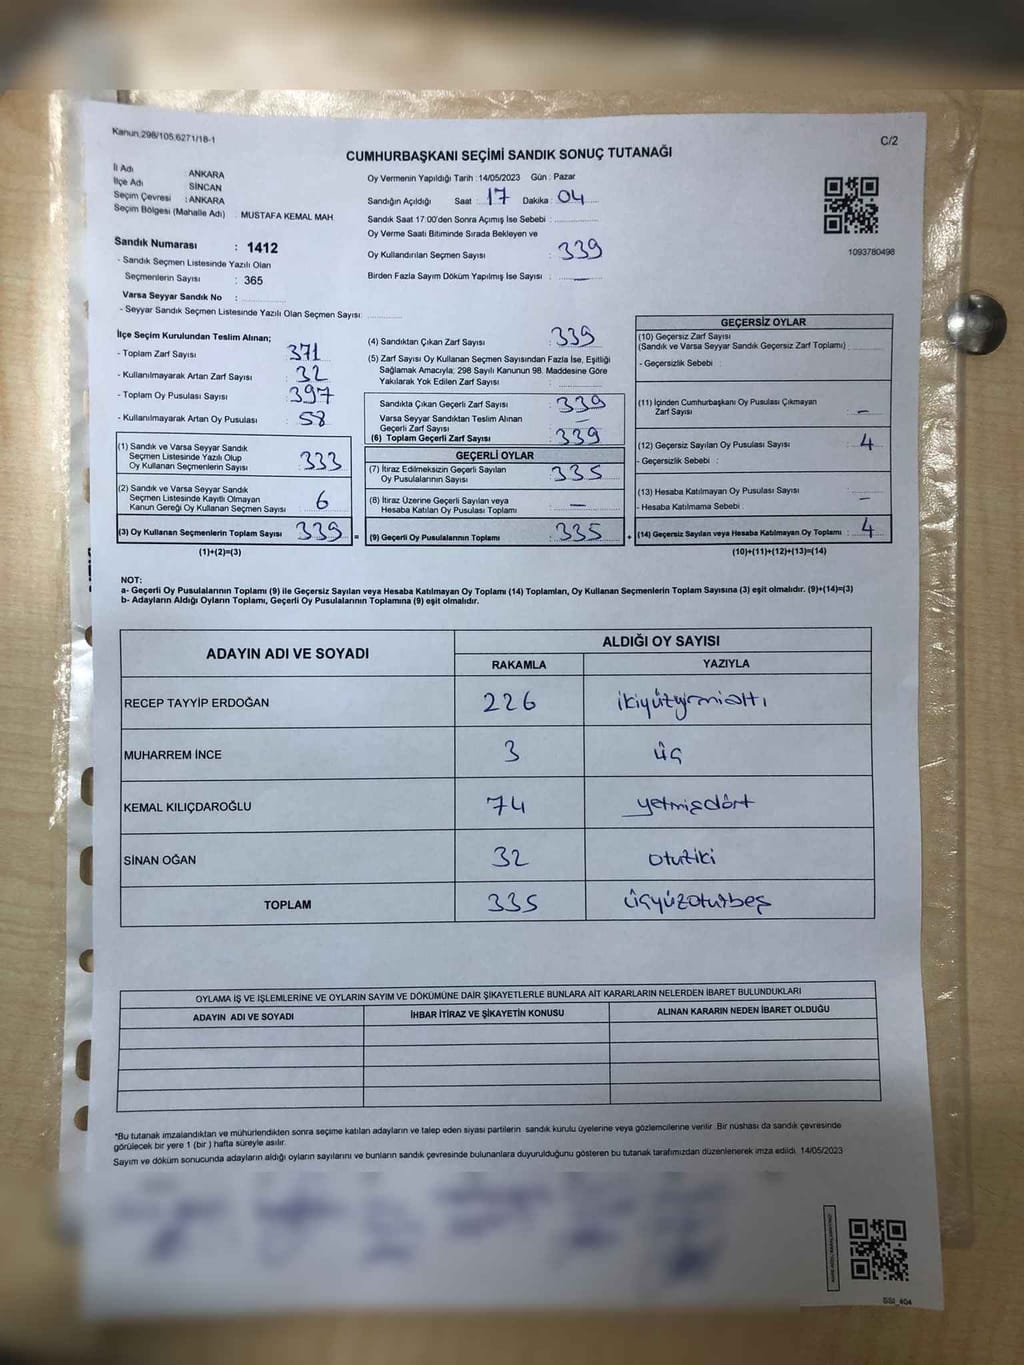 Kanun.298/105.6271/18-1
C/2
CUMHURBAŞKANI SEÇİMİ SANDIK SONUÇ TUTANAĞI
İl Adı : ANKARA
İlçe Adı SİNCAN
Seçim Çevresi : ANKARA
Seçim Bölgesi (Mahalle Adı) : MUSTAFA KEMAL MAH
Sandık Numarası : 1412
- Sandık Seçmen Listesinde Yazılı Olan
Seçmenlerin Sayısı : 365
Varsa Seyyar Sandık No :
- Seyyar Sandık Seçmen Listesinde Yazılı Olan Seçmen Sayısı:
Oy Vermenin Yapıldığı Tarih : 14/05/2023 Gün : Pazar
Sandığın Açıldığı Saat : 17 Dakika : 04
Sandık Saat 17:00'den Sonra Açımış İse Sebebi :
Oy Verme Saati Bitiminde Sırada Bekleyen ve
Oy Kullandırılan Seçmen Sayısı : 339
Birden Fazla Sayım Döküm Yapılmış İse Sayısı : —
1093780498
İlçe Seçim Kurulundan Teslim Alınan;
- Toplam Zarf Sayısı : 371
- Kullanılmayarak Artan Zarf Sayısı : 32
- Toplam Oy Pusulası Sayısı : 397
- Kullanılmayarak Artan Oy Pusulası : 58
(1) Sandık ve Varsa Seyyar Sandık
Seçmen Listesinde Yazılı Olup
Oy Kullanan Seçmenlerin Sayısı : 333
(2) Sandık ve Varsa Seyyar Sandık
Seçmen Listesinde Kayıtlı Olmayan
Kanun Gereği Oy Kullanan Seçmen Sayısı : 6
(3) Oy Kullanan Seçmenlerin Toplam Sayısı : 339 =
(1)+(2)=(3)
(4) Sandıktan Çıkan Zarf Sayısı : 339
(5) Zarf Sayısı Oy Kullanan Seçmen Sayısından Fazla İse, Eşitliği
Sağlamak Amacıyla; 298 Sayılı Kanunun 98. Maddesine Göre
Yakılarak Yok Edilen Zarf Sayısı :
Sandıkta Çıkan Geçerli Zarf Sayısı : 339
Varsa Seyyar Sandıktan Teslim Alınan
Geçerli Zarf Sayısı : —
(6) Toplam Geçerli Zarf Sayısı : 339
GEÇERLİ OYLAR
(7) İtiraz Edilmeksizin Geçerli Sayılan
Oy Pusulalarının Sayısı : 335
(8) İtiraz Üzerine Geçerli Sayılan veya
Hesaba Katılan Oy Pusulası Toplamı : —
(9) Geçerli Oy Pusulalarının Toplamı : 335 +
GEÇERSİZ OYLAR
(10) Geçersiz Zarf Sayısı
(Sandık ve Varsa Seyyar Sandık Geçersiz Zarf Toplamı) :
- Geçersizlik Sebebi :
(11) İçinden Cumhurbaşkanı Oy Pusulası Çıkmayan
Zarf Sayısı : —
(12) Geçersiz Sayılan Oy Pusulası Sayısı : 4
- Geçersizlik Sebebi :
(13) Hesaba Katılmayan Oy Pusulası Sayısı : —
- Hesaba Katılmama Sebebi :
(14) Geçersiz Sayılan veya Hesaba Katılmayan Oy Toplamı : 4
(10)+(11)+(12)+(13)=(14)
NOT:
a- Geçerli Oy Pusulalarının Toplamı (9) ile Geçersiz Sayılan veya Hesaba Katılmayan Oy Toplamı (14) Toplamları, Oy Kullanan Seçmenlerin Toplam Sayısına (3) eşit olmalıdır. (9)+(14)=(3)
b- Adayların Aldığı Oyların Toplamı, Geçerli Oy Pusulalarının Toplamına (9) eşit olmalıdır.
ADAYIN ADI VE SOYADI
ALDIĞI OY SAYISI
RAKAMLA YAZIYLA
RECEP TAYYİP ERDOĞAN 226 ikiyüzyirmialtı
MUHARREM İNCE 3 üç
KEMAL KILIÇDAROĞLU 74 yetmişdört
SİNAN OĞAN 32 otuziki
TOPLAM 335 üçyüzotuzbeş
OYLAMA İŞ VE İŞLEMLERİNE VE OYLARIN SAYIM VE DÖKÜMÜNE DAİR ŞİKAYETLERLE BUNLARA AİT KARARLARIN NELERDEN İBARET BULUNDUKLARI
ADAYIN ADI VE SOYADI İHBAR İTİRAZ VE ŞİKAYETİN KONUSU ALINAN KARARIN NEDEN İBARET OLDUĞU
*Bu tutanak imzalandıktan ve mühürlendikten sonra seçime katılan adayların ve talep eden siyasi partilerin sandık kurulu üyelerine veya gözlemcilerine verilir. Bir nüshası da sandık çevresinde
görülecek bir yere 1 (bir ) hafta süreyle asılır.
Sayım ve döküm sonucunda adayların aldığı oyların sayılarını ve bunların sandık çevresinde bulunanlara duyurulduğunu gösteren bu tutanak tarafımızdan düzenlenerek imza edildi. 14/05/2023
SSI_404